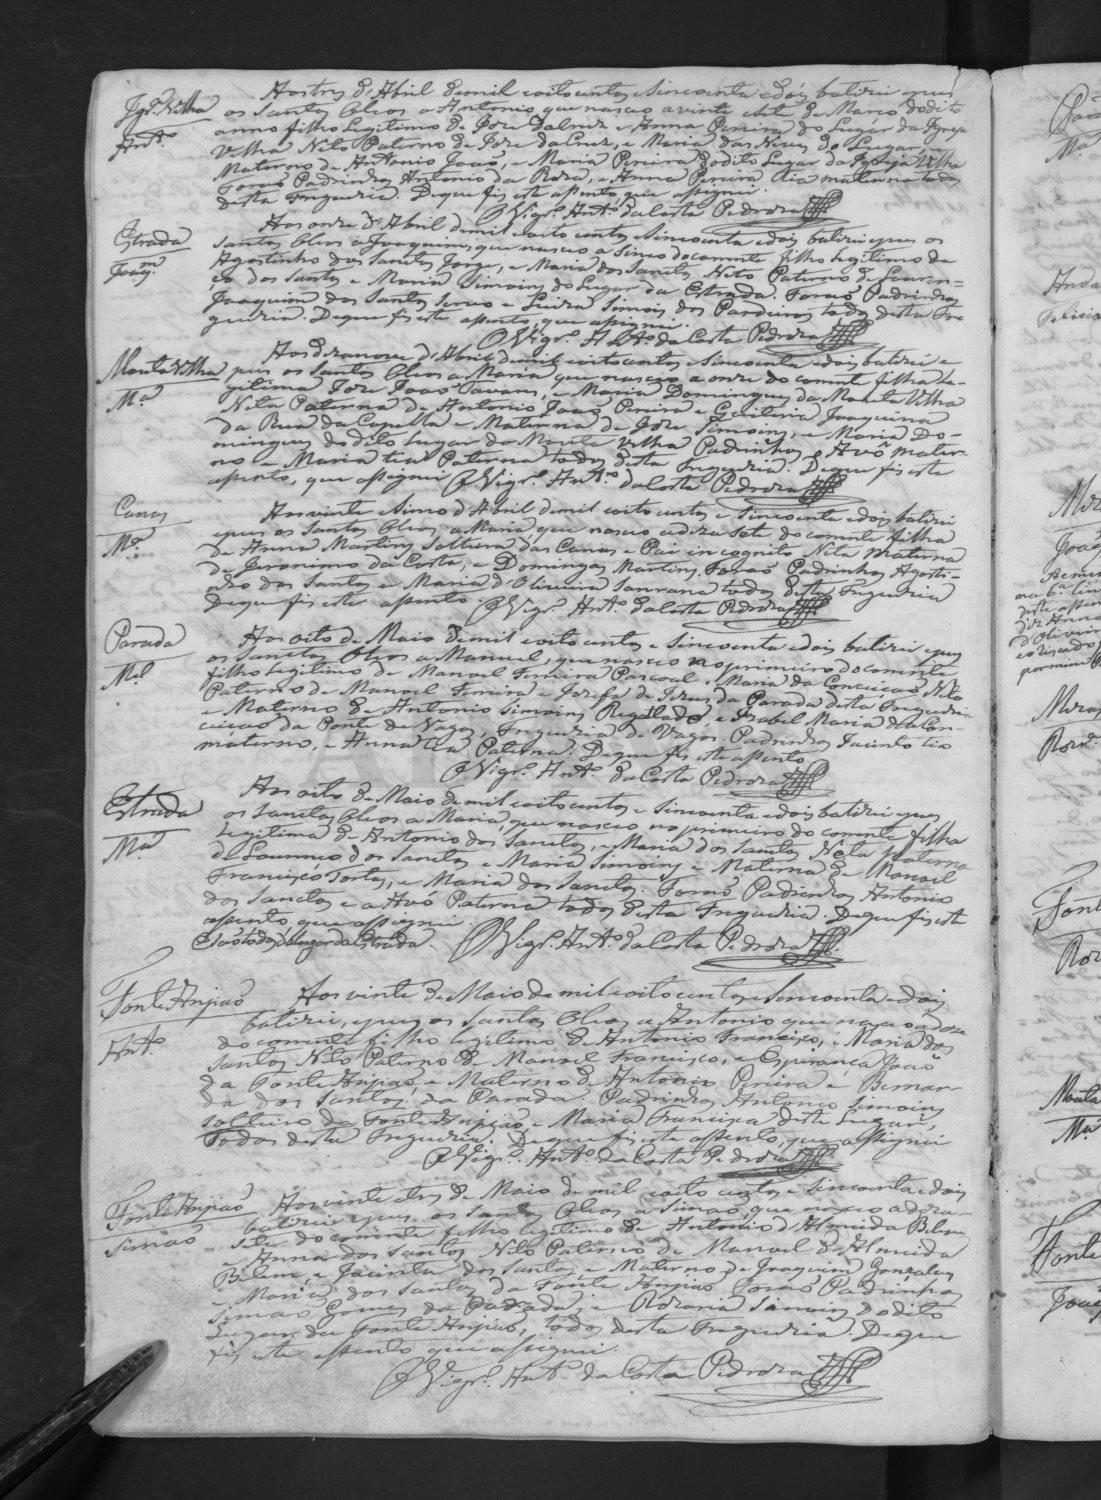 Igrª Velha
Antº
Aos tres d'Abril de mil oitocentos e sincoenta e dois batizei e pus
os Santos Oleos a Antonio, que nasceo a vinte e sete de Março do dito
anno filho Legitimo de Joze da Cruz e Anna Pereira do Lugar da Igreja
Velha Neto Paterno de Joze da Cruz, e Maria das Neves do Lugar, e
Materno de Antonio João, e Maria Pereira do dito Lugar da Igreja Velha
Forão Padrinhos Antonio da Roza, e Anna Pereira tia materna todos
desta Freguezia. De que fis este assento que assignei.
O Vigrº Antº da Costa Pedroza
Estrada
Joaqm
Aos onze d'Abril de mil oito centos e sincoenta e dois batizei e pus os
Santos Oleos a Joaquim, que nasceo a sinco do corrente filho legitimo de
Agostinho dos Santos Jorge, e Maria dos Santos Neto Paterno de Louren-
ço dos Santos e Maria Simoins do Lugar da Estrada. Forão Padrinhos
Joaquim dos Santos e Luiza Simois dos Pardeiros todos desta Fre
guezia. De que fis este assento, que assignei.
O Vigrº Antº da Costa Pedroza
Monte Velha
Mª
Aos dezanove d'Abril de mil oitocentos e sincoenta e dois batizei e
pus os Santos Oleos a Maria que nasceo a onze do corrente filha Le-
gitima Joze João Tavares, e Maria Domingues da Monte Velha
Neta Paterna de Antonio João Pereira e Quiteria Joaquina
da Rua da Capella e Materna de Joze Simoins, e Maria Do-
mingues do dito Lugar da Monte Velha Padrinhos o Avô Mater-
no e Maria tia Paterna todos desta Freguezia. De que fis este
assento, que assignei O Vigrº Antº da Costa Pedroza
Canas
Mª
Aos vinte e sinco d'Abril de mil oito centos e sincoenta e dois batizei
e pus os Santos Oleos a Maria, que nasceo a deza sete do corrente filha
de Anna Martins solteira das Canas e Pai incognito Neta Materna
de Jeronimo da Costa, e Domingas Martins Forão Padrinhos Agosti-
nho dos Santos e Maria d'Oliveira todos desta Freguezia
De que fis este assento. O Vigrº Antº da Costa Pedroza
Parada
Mel
Aos oito de Maio de mil oito centos e sincoenta e dois batizei e pus
os Santos Oleos a Manuel, que nasceo no primeiro do corrente
filho Legitimo de Manoel Ferreira Pascoal e Maria da Conceição, Neto
Paterno de Manoel Ferreira e Jozefa de Jezus da Parada desta Freguezia
e Materno de Antonio Simoins Regallado, e Izabel Maria da Con-
ceição da Ponte de Vagos, Freguezia de Vagos. Padrinhos Jacinto tio
materno, e Anna tia Paterna. De que fis este assento
O Vigrº Antº da Costa Pedroza
Estrada
Mª
Aos oito de Maio de mil oitocentos e sincoenta e dois batizei e pus
os Santos Oleos a Maria, que nasceo no primeiro do corrente filha
Legitima de Antonio dos Santos, e Maria dos Santos Neta paterna
de Lourenço dos Santos e Maria Simoins e Materna de Manoel
Francisco Tortas, e Maria dos Santos. Forão Padrinhos Antonio
dos Santos e a Avó Paterna todos desta Freguezia. De que fis este
assento que assignei
São todos do Lugar da Estrada. O Vigrº Antº da Costa Pedroza
Fonte Anjião
Antº
Aos vinte de Maio de mil oito centos e sincoenta e dois
batizei, e pus os Santos Oleos a Antonio que nasceo a doze
do corrente filho legitimo de Antonio Francisco, e Maria dos
Santos Neto Paterno de Manoel Francisco, e Esperança João
da Fonte Anjião, e Materno de Antonio Pereira e Bernar-
da dos Santos, da Parada. Padrinhos Antonio Simoins
solteiro da Fonte Anjião, e Maria Francisca deste Lugar,
Todos desta Freguezia. De que fis este assento, que assignei
O Vigrº Antº da Costa Pedroza
Fonte Anjião
Simão
Aos vinte e tres de Maio de mil oito centos e sincoenta e dois
batizei e pus os Santos Oleos a Simão, que nasceo a deza-
sete do corrente filho legitimo de Antonio d'Almeida Belem
e Anna dos Santos Neto Paterno de Manoel d'Almeida
Belem, e Jacinta dos Santos, e Materno de Joaquim Gonzalves
e Maria dos Santos da Fonte Anjião Forão Padrinhos
Simão Gomes da Parada, e Rozaria Simoins do dito
Lugar da Fonte Anjião, todos desta Freguezia. De que
fis este assento que assignei.
O Vigrº Antº da Costa Pedroza